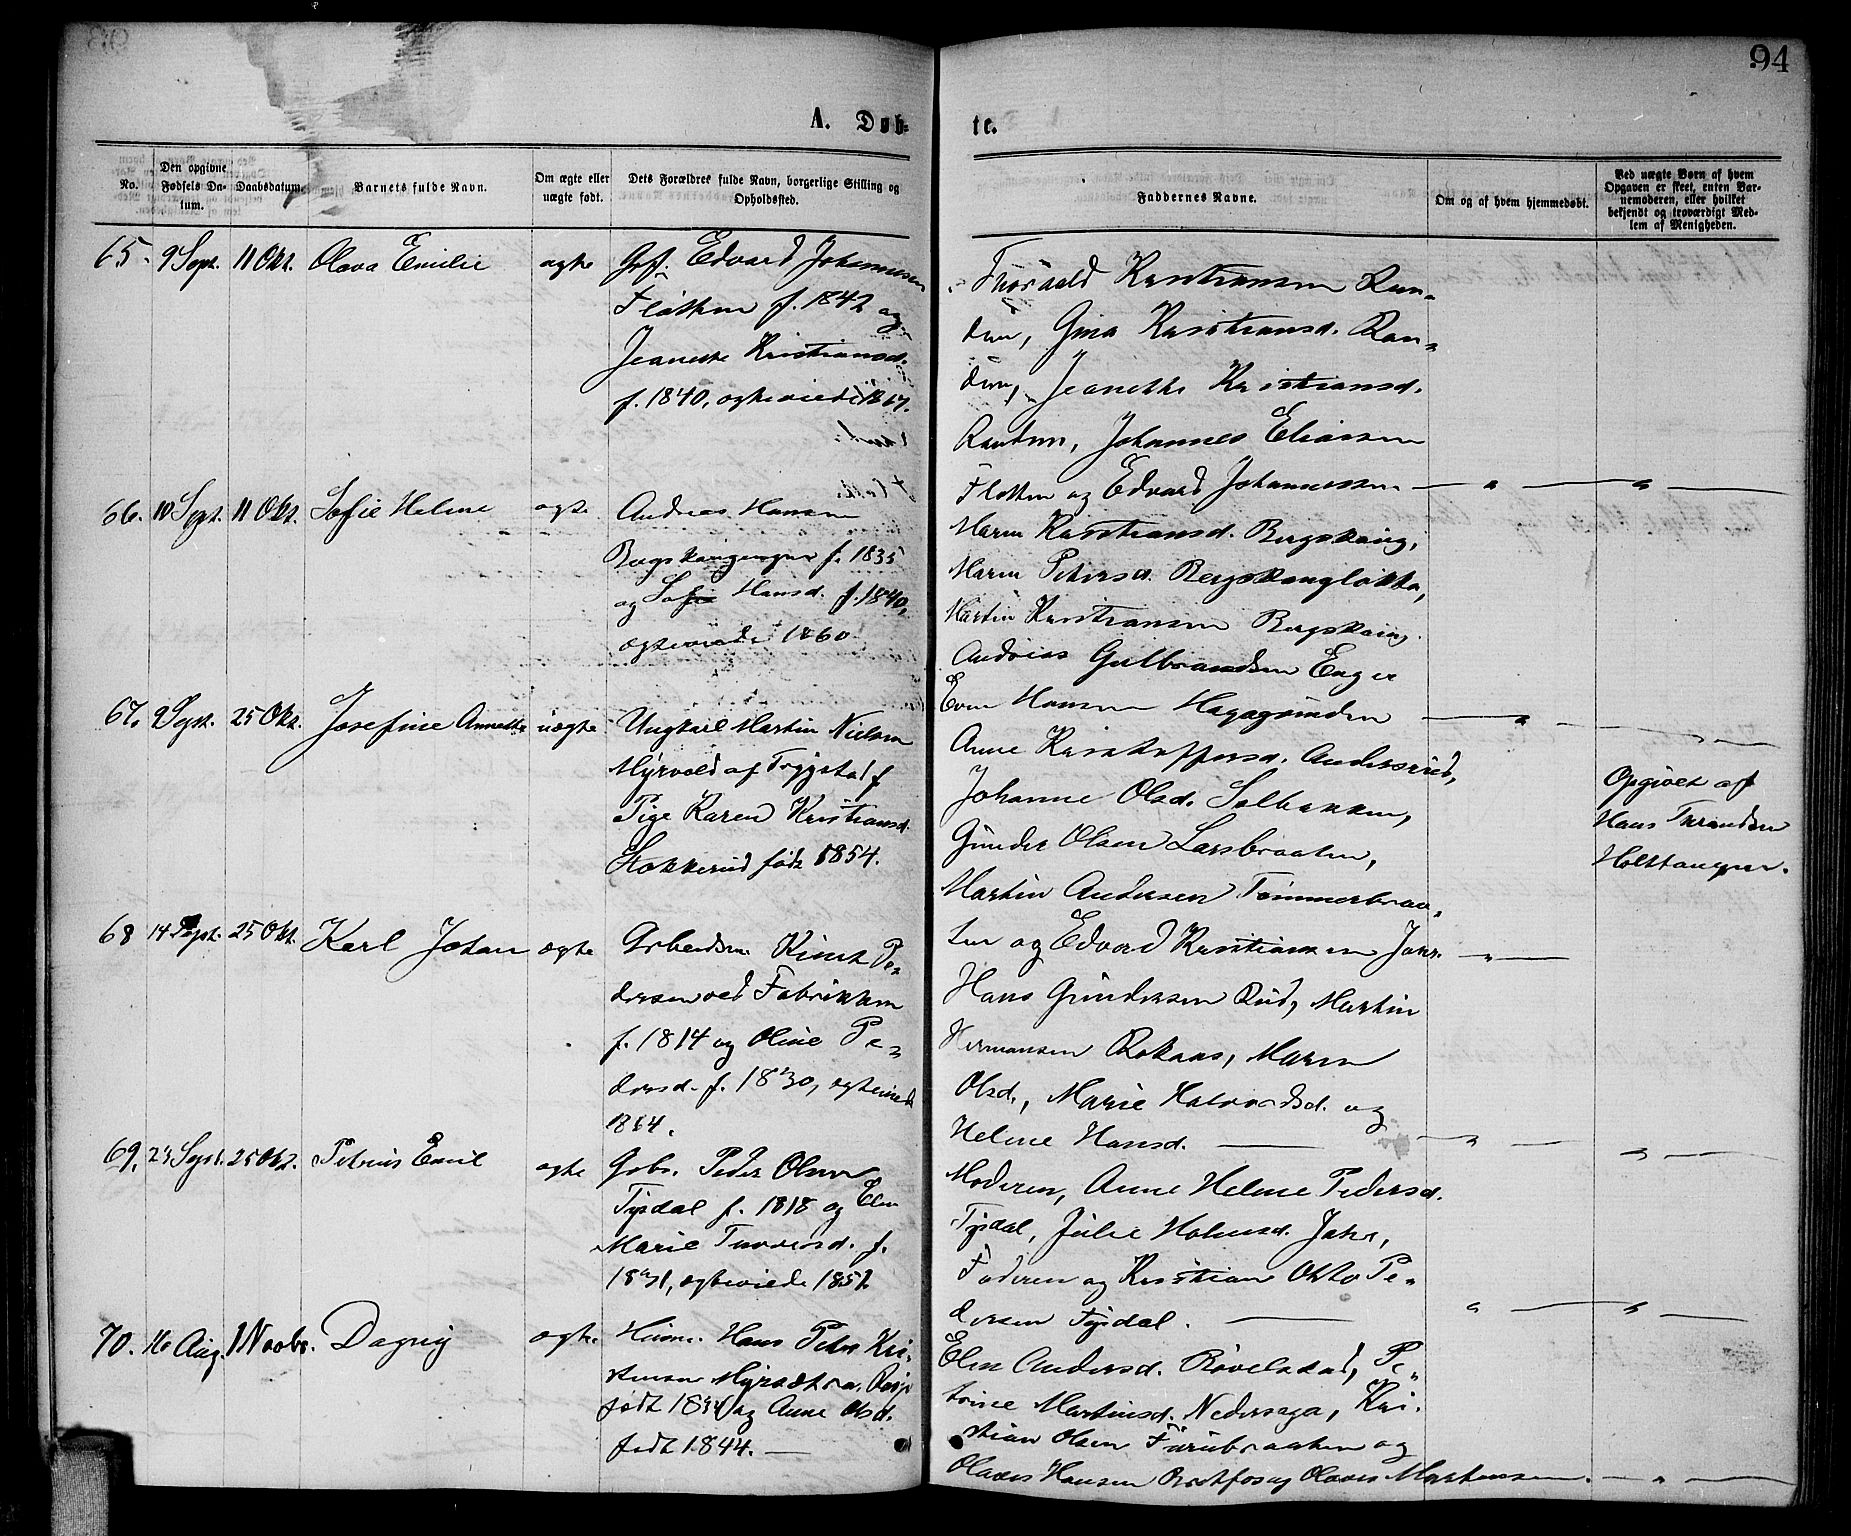 94
A. Døb-
te.
No.
Den opgivne Fødsels Datum.
Daabsdatum.
Barnets fulde Navn.
Om ægte eller uægte født.
Dets Forældres fulde Navn, borgerlige Stilling og Opholdssted.
Faddernes Navne.
Om og af hvem hjemmedøbt.
Ved uægte Børn af hvem Opgaven er skeet, enten Barnemoderen, eller hvilket bekjendt og troværdigt Medlem af Menigheden.
65. 9 Sept. 11 Okt. Olava Emilie ægte
Edvard Johannesen
Fløtten f. 1842 og
Jeanette Kristiansd.
f. 1840, ægteviede 1867.
Thorvald Kristiansen Ran-
dem, Gina Kristiansd. Ran-
dem, Jeanette Kristiansd.
Randem, Johannes Eliassen
Fløtten og Edvard Johannessen
66. 10 Sept. 11 Okt. Sofie Helene ægte
Andreas Hansen
f. 1835
og Sofie Hansd. f. 1840,
ægteviede 1860
Maren Kristiansd. Bergskaug,
Maren Petersd. Bergskaugløkka,
Martin Kristiansen Bergskaug.
Andreas Gulbrandsen Enger
Even Hansen Hagagrinden
67. 2 Sept. 25 Okt. Josefine Annette uægte
Ungkarl Martin Nielsen
Myrvold af Trygstad
Pige Karen Kristiansd.
Stokkerud født 1854.
Anne Kristoffersd. Andersrud,
Johanne Olsd. Solbakken,
Gunder Olsen Larsbraaten,
Martin Andersen Tømmerbraa-
ten og Edvard Kristiansen Jahr.
Opgivet af
Hans
68 14 Sept. 25 Okt. Karl Johan ægte
Knut Pe-
dersen ved Fabrikken
f. 1814 og Oline Pe-
dersd. f. 1830, ægteviede
1864.
Hans Gundersen Rud, Martin
Hermansen Maren
Olsd., Marie Halvordsd. og
Helene Hansd.
69. 23 Sept. 25 Okt. Petrius Emil ægte
Peder Olsen
Tysdal f. 1818 og Elen
Marie f.
1831, ægteviede 1852
Moderen, Anne Helene Pedersd.
Tysdal, Julie Jahr,
Faderen og Kristian Okto Pe-
dersen Tysdal.
70. 16 Aug. 1 Novbr. Dagny ægte
Hans Peter Kri-
stensen
født og Anne Olsd.
født 1844.
Elen Andersd. Pe-
trine Martinsd. Kri-
stian Olsen Furubraaten og
Olaves Hansen Olaves Martinsen.